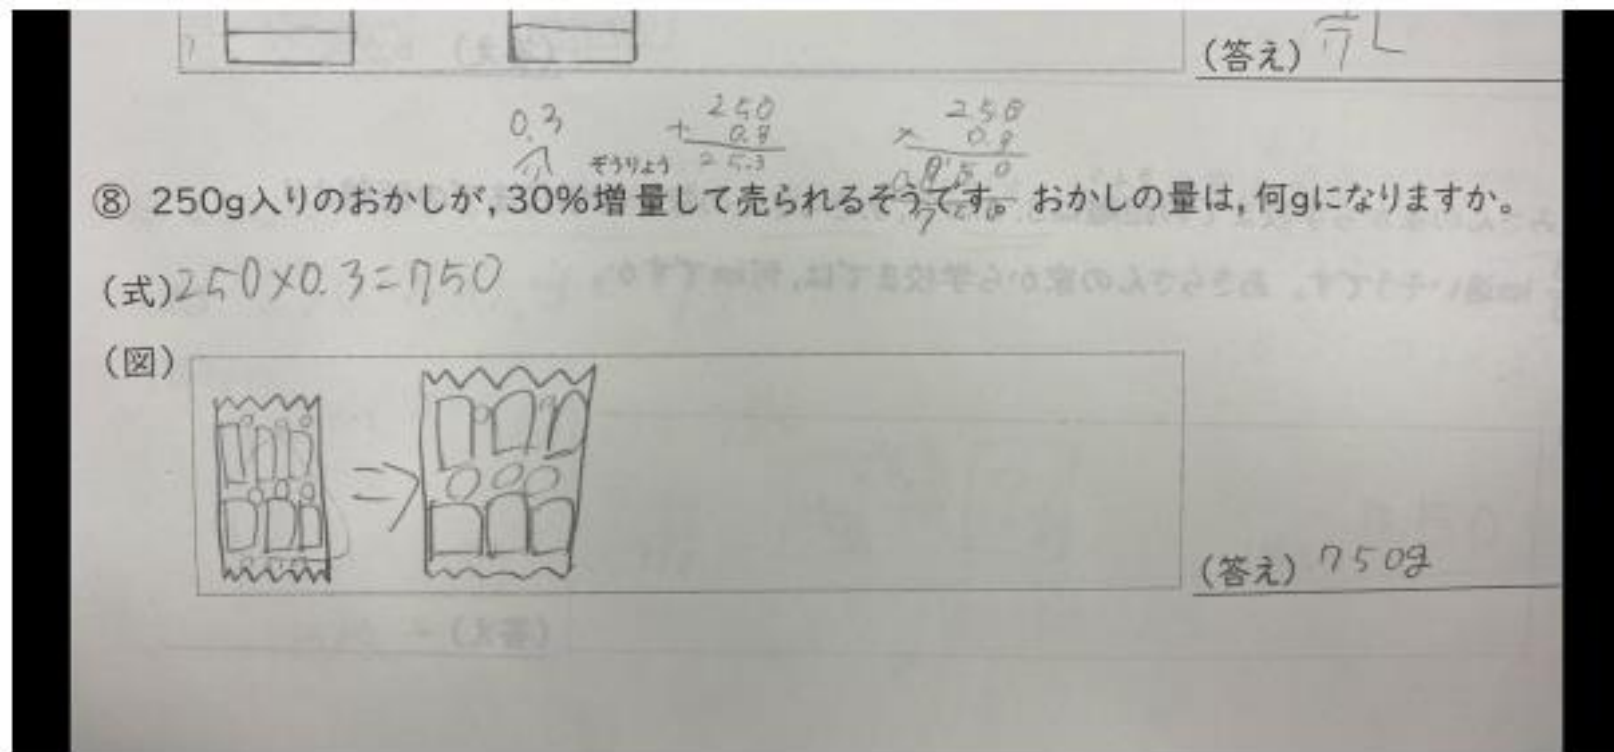 (答え) 7 L
0.3
250
+ 0.3
25.3
250
× 0.3
ぞうりょう
⑧ 250g入りのおかしが,30%増量して売られるそうです。おかしの量は,何gになりますか。
(式)250×0.3=750
(図)
(答え) 750g